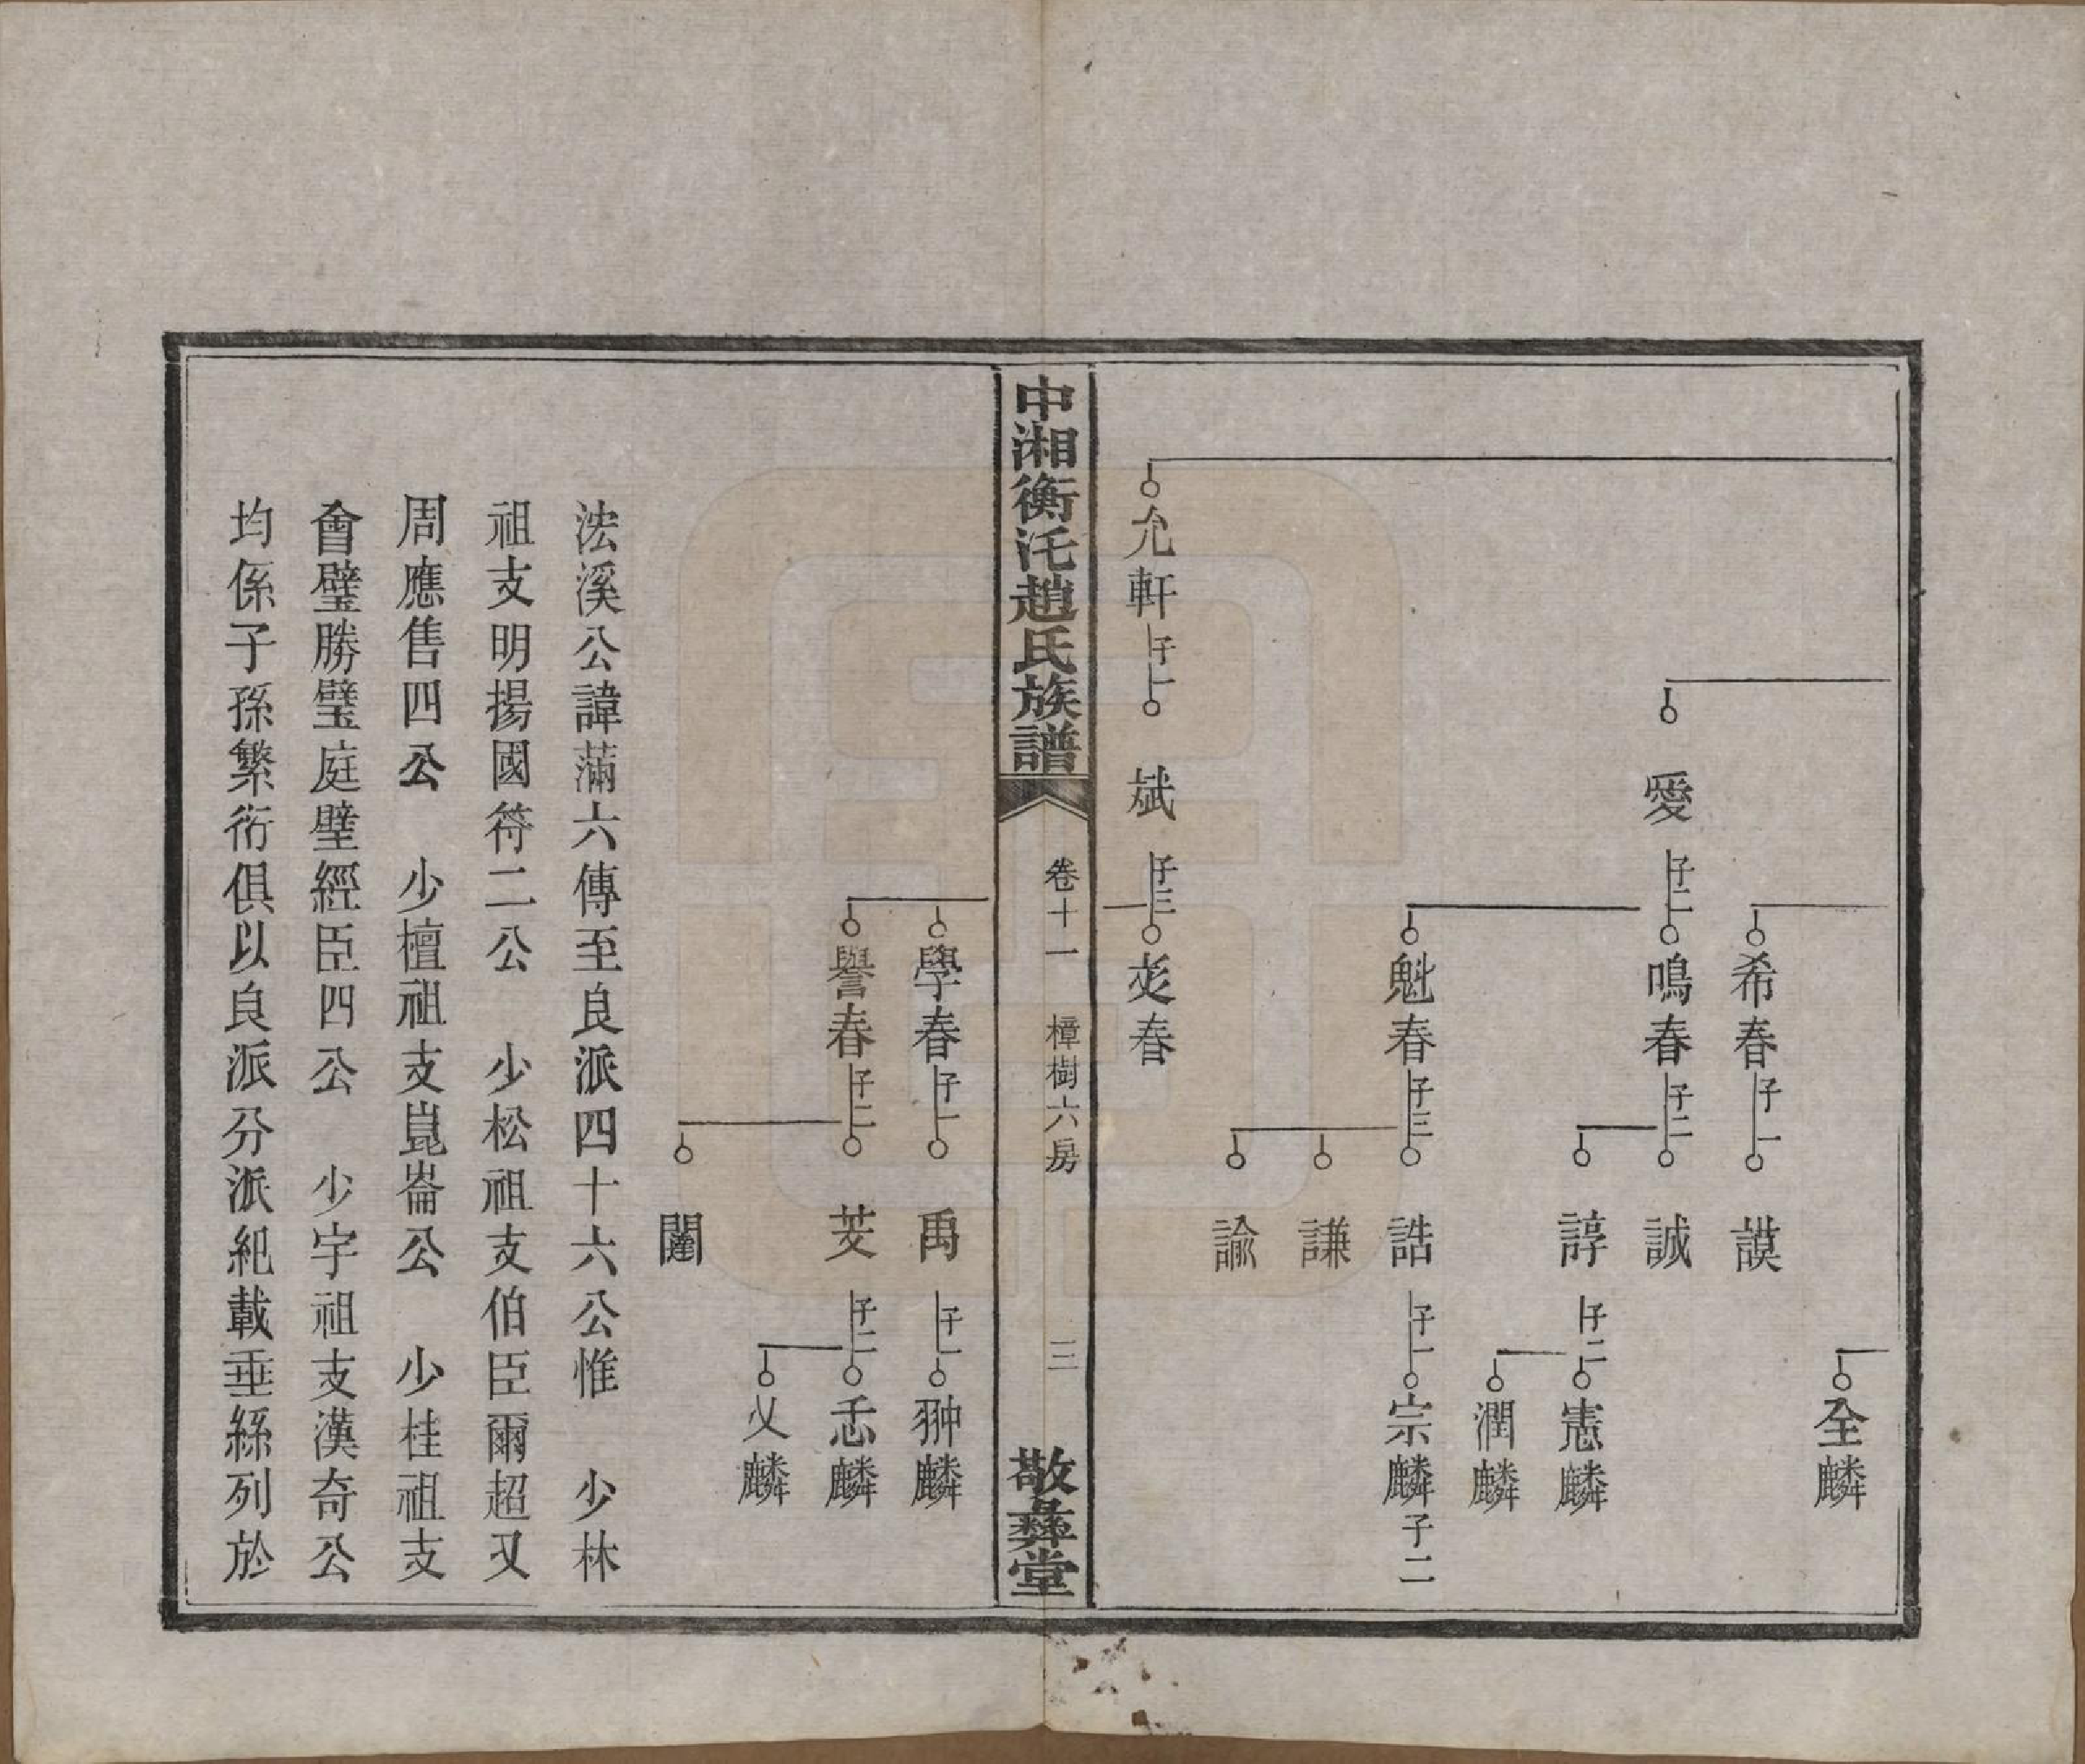 全麟
希春 子一 謨
愛 子二 鳴春 子二 誠
諄 子二 憲麟
潤麟
魁春 子三 誥 子一 宗麟 子二
謙
諭
允軒 子一 斌 子三 炗春
中湘衡汑趙氏族譜 卷十一 樟樹六房 三 敬彝堂
學春 子一 禹 子一 翀麟
譽春 子二 芨 子二 忎麟
乂麟
闥
浤溪公諱滿六傳至良派四十六公惟 少林
祖支明揚國符二公 少松祖支伯臣爾超又
周應售四公 少檀祖支崑崙公 少桂祖支
會璧勝璧庭璧經臣四公 少宇祖支漢奇公
均係子孫繁衍俱以良派分派紀載垂絲列於